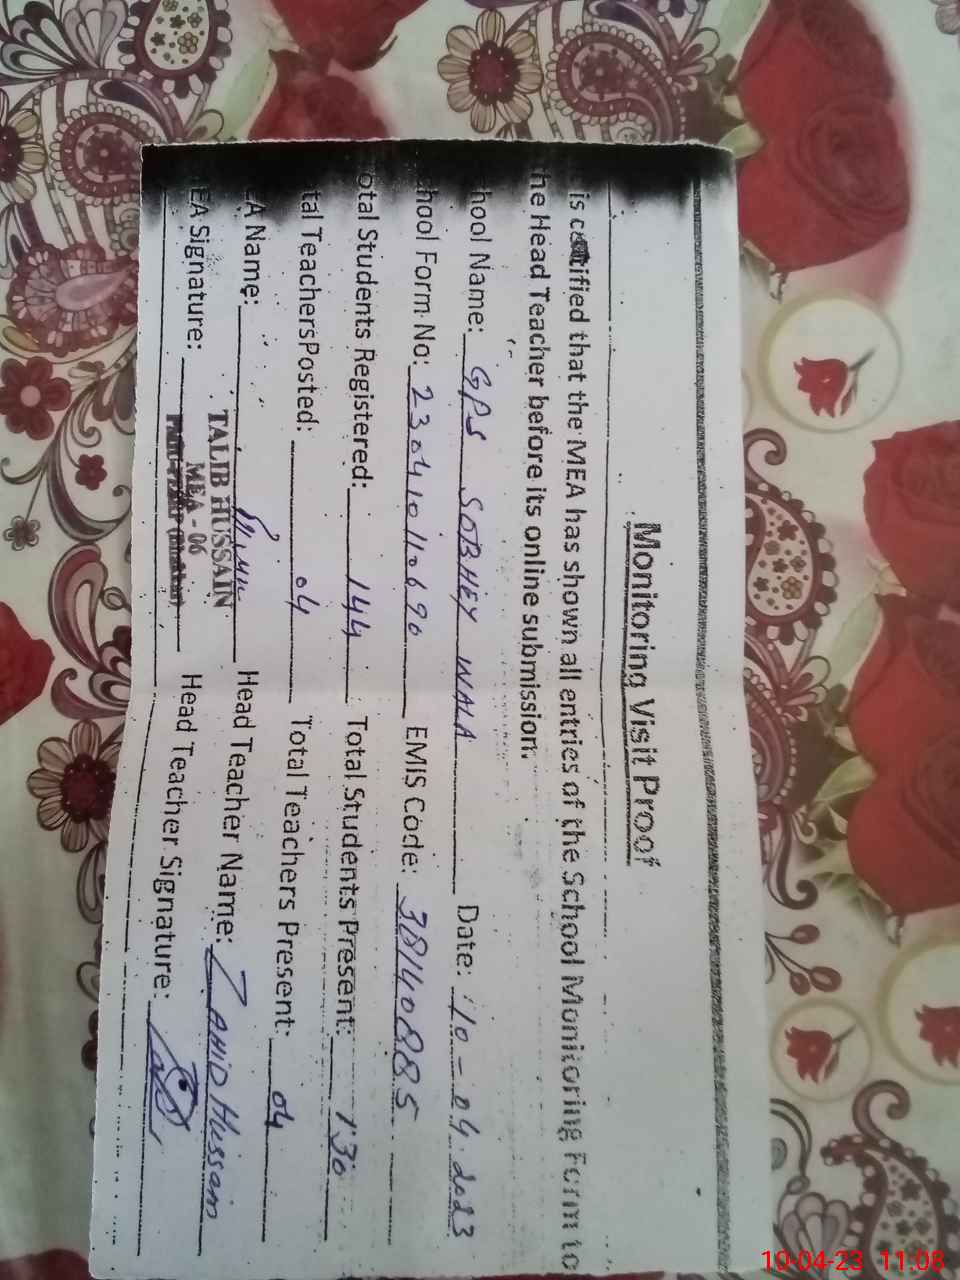 Monitoring Visit Proof
is certified that the MEA has shown all entries of the School Monitoring Form to
he Head Teacher before its online submission.
hool Name: GPS SOBHEY WALA Date: 10-04-2023
hool Form No: 23041011690 EMIS Code: 38140885
otal Students Registered: 144 Total Students Present: 130
tal TeachersPosted: 04 Total Teachers Present: 04
EA Name: Head Teacher Name: ZAHID Hussain
TALIB HUSSAIN
MEA - 06
EA Signature: Head Teacher Signature:
10-04-23 11:08